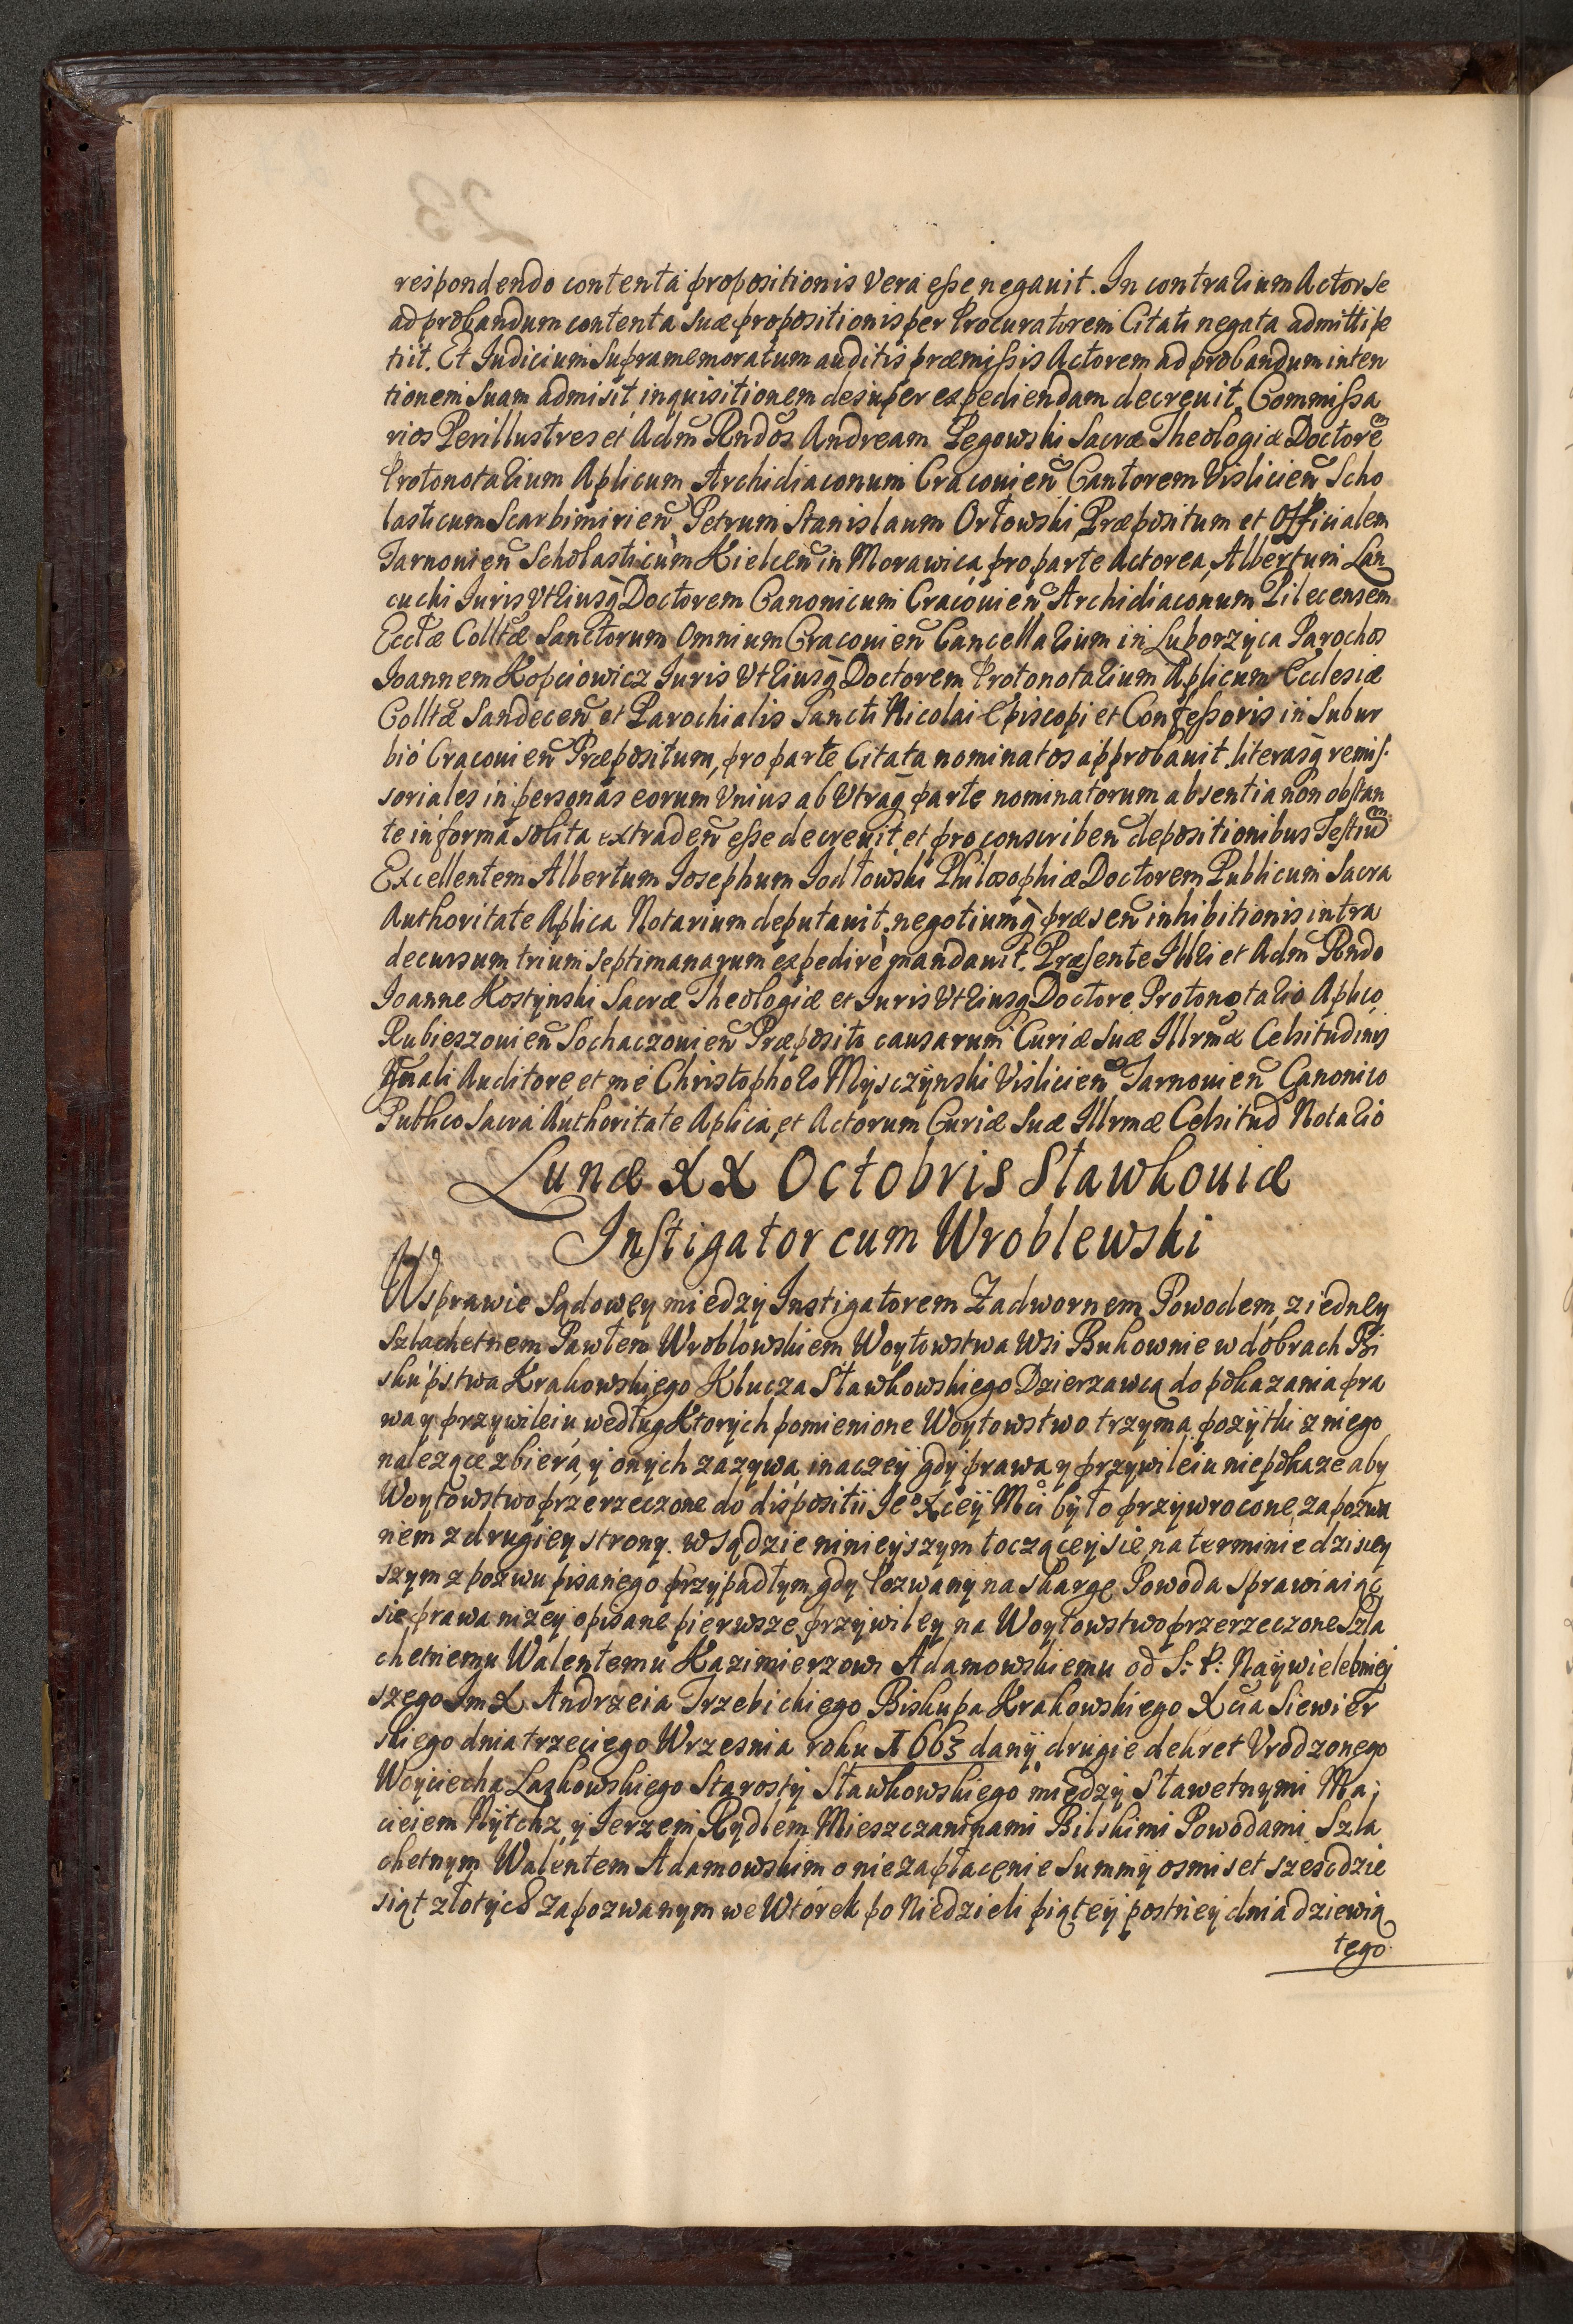 respondendo contenta propositionis vera esse negauit. In contrarium Actor se
ad probandum contenta suæ propositionis per Procuratorem Citati negata admitti pe
tiit. Et Iudicium supramemoratum auditis præmissis Actorem ad probandum inten
tionem suam admisit, inquisitionem desuper expediendam decreuit, Commissa
rios Perillustres et Adm̃ Rndos Andream Pegowski Sacræ Theologiæ Doctorẽ
Protonotarium Aplicum Archidiaconum Cracouieñ Cantorem Vislicieñ Scho
lasticum Scarbimirieñ Petrum Stanislaum Orłowski Præpositum et Officialem
Tarnouieñ Scholasticum Kielceñ in Morawica pro parte Actorea, Albertum Lan
cuchi Iuris Vtriusq̃ Doctorem Canonicum Cracouieñ Archidiaconum Pilecensem
Ecctæ Colltæ Sanctorum Omnium Cracouieñ Cancellarium in Luborzyca Parochos
Ioannem Kopciowicz Iuris Vtriusq̃ Doctorem Protonotarium Aplicum Ecclesiæ
Colltæ Sandeceñ et Parochialis Sancti Nicolai Episcopi et Confessoris in Subur
bio Cracouieñ Præpositum, pro parte Citata nominatos approbauit, literasq̃ remis
soriales in personas eorum Vnius ab Vtraq̃ parte nominatorum absentia non obstan
te in forma solita extradeñ esse decreuit, et pro conscribeñ depositionibus Testiũ
Excellentem Albertum Iosephum Iodłowski Philosophiæ Doctorem Publicum Sacra
Authoritate Aplica Notarium deputauit, negotiumq̃ præseñ inhibitionis intra
decursum trium septimanarum expedire mandauit. Præsente Illri et Adm̃ Rndo
Ioanne Kostynski Sacræ Theologiæ et Iuris Vtriusq̃ Doctore Protonotario Aplico
Rubieszouieñ Sochaczouieñ Præposito causarum Curiæ Suæ Illrmæ Celsitudinis
Gñali Auditore, et me Christophoro Myszczynski Vislicieñ Tarnouieñ Canonico
Publico Sacra Authoritate Aplica, et Actorum Curiæ Suæ Illrmæ Celsitud Notario
Lunæ XX Octobris Sławkouiæ
Instigator cum Wroblewski
W sprawie Sądowey miedzy Instigatorem Zadwornem Powodem, z iedney
Szlachetnem Pawłem Wroblowskiem Woytowstwa Wsi Bukownie w dobrach Bi
skupstwa Krakowskiego Klucza Sławkowskiego Dzierzawcą do pokazania pra
wa y przywileiu, według ktorych pomienione Woytowstwo trzyma, pozytki z niego
nalezące zbiera, y onych zazywa, inaczey gdy prawa y przywileiu nie pokaze aby
Woytowstwo przerzeczone do dispositii Ieº Xcey Mci było przywrocone, zapozwa
niem z drugiey strony. w Sądzie ninieyszym toczącey sie, na terminie dzisiey
szym z pozwu pisanego przypadłym, gdy Pozwany na skargę Powoda sprawiaiąc
sie, prawa nizey opisane, pierwsze przywiley na Woytowstwo przerzeczone Szla
chetnemu Walentemu Kazimierzowi Adamowskiemu od S: P: Naywielebniey
szego Jm X. Andrzeia Trzebickiego Biskupa Krakowskiego Xcia Siewier
skiego dnia trzeciego Wrzesnia roku 1663 dany, drugie dekret Vrodzonego
Woyciecha Laskowskiego Starosty Sławkowskiego między Sławetnymi Ma;
cieiem Nytchz y Ierzem Rydlem Mieszczaninami Bilskimi Powodami, Szla
chetnym Walentem Adamowskim o niezapłacenie Summy osmiset szescdzie
siąt złotych zapozwanym we Wtorek po Niedzieli piątey postney dnia dziewią
tego